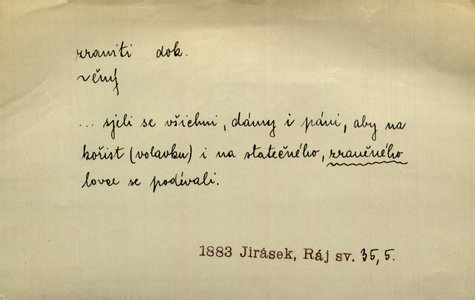 zraniti dok.
-ěný
... sjeli se všichni, dámy i páni, aby na
kořist (volavku) i na statečného, zraněného
lovce se podívali.
1883 Jirásek, Ráj sv. 35,5.